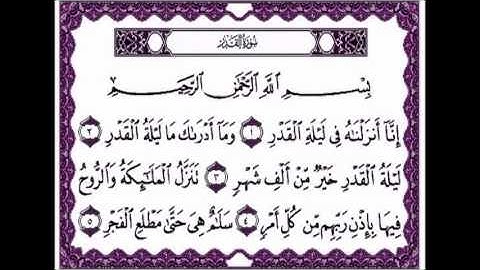 سُورَةُ القَدْرِ
بِسْمِ ٱللَّهِ ٱلرَّحْمَٰنِ ٱلرَّحِيمِ
إِنَّآ أَنزَلْنَٰهُ فِى لَيْلَةِ ٱلْقَدْرِ ١ وَمَآ أَدْرَىٰكَ مَا لَيْلَةُ ٱلْقَدْرِ ٢
لَيْلَةُ ٱلْقَدْرِ خَيْرٌ مِّنْ أَلْفِ شَهْرٍ ٣ تَنَزَّلُ ٱلْمَلَٰٓئِكَةُ وَٱلرُّوحُ
فِيهَا بِإِذْنِ رَبِّهِم مِّن كُلِّ أَمْرٍ ٤ سَلَٰمٌ هِىَ حَتَّىٰ مَطْلَعِ ٱلْفَجْرِ ٥